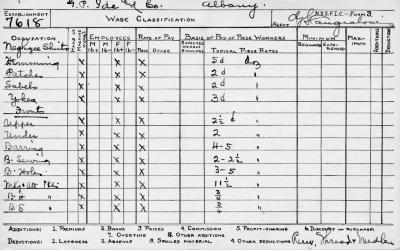 G. P. Ide & Co. Albany.
ESTABLISHMENT
7618
WAGE CLASSIFICATION
N.Y.S.F.I.C. — FORM 3.
AGENT
OCCUPATION
EMPLOYEES
RATE OF PAY
BASIS OF PAY OF PIECE WORKERS
MINIMUM
MAXIMUM
ADDITIONS
DEDUCTIONS
M 16+ M 16- F 16+ F 16-
PIECE OTHER
TYPICAL PIECE RATES
BEGINNERS EXPERIENCED
Negligee Shirts
Hemming x x x 5¢ doz
Patches x x x 2¢ "
Labels x x x 2¢ "
Yokes x x x 3¢ "
Fronts
Upper x x x 2½ ¢ "
Under x x x 2 "
Barring x x x 4-5 "
B. Sewing x x x 2-2½ "
B. Holes x x x 3-5 "
x x x 11½ "
B H x x x "
B S x x x "
ADDITIONS: 1. PREMIUMS 2. BONUS 3. PRIZES 4. COMMISSION 5. PROFIT-SHARING 6. DISCOUNT ON PURCHASES
7. OVERTIME 8. OTHER ADDITIONS
DEDUCTIONS: 1. LATENESS 2. ABSENCE 3. SPOILED MATERIAL 4. OTHER DEDUCTIONS Thread & Needles